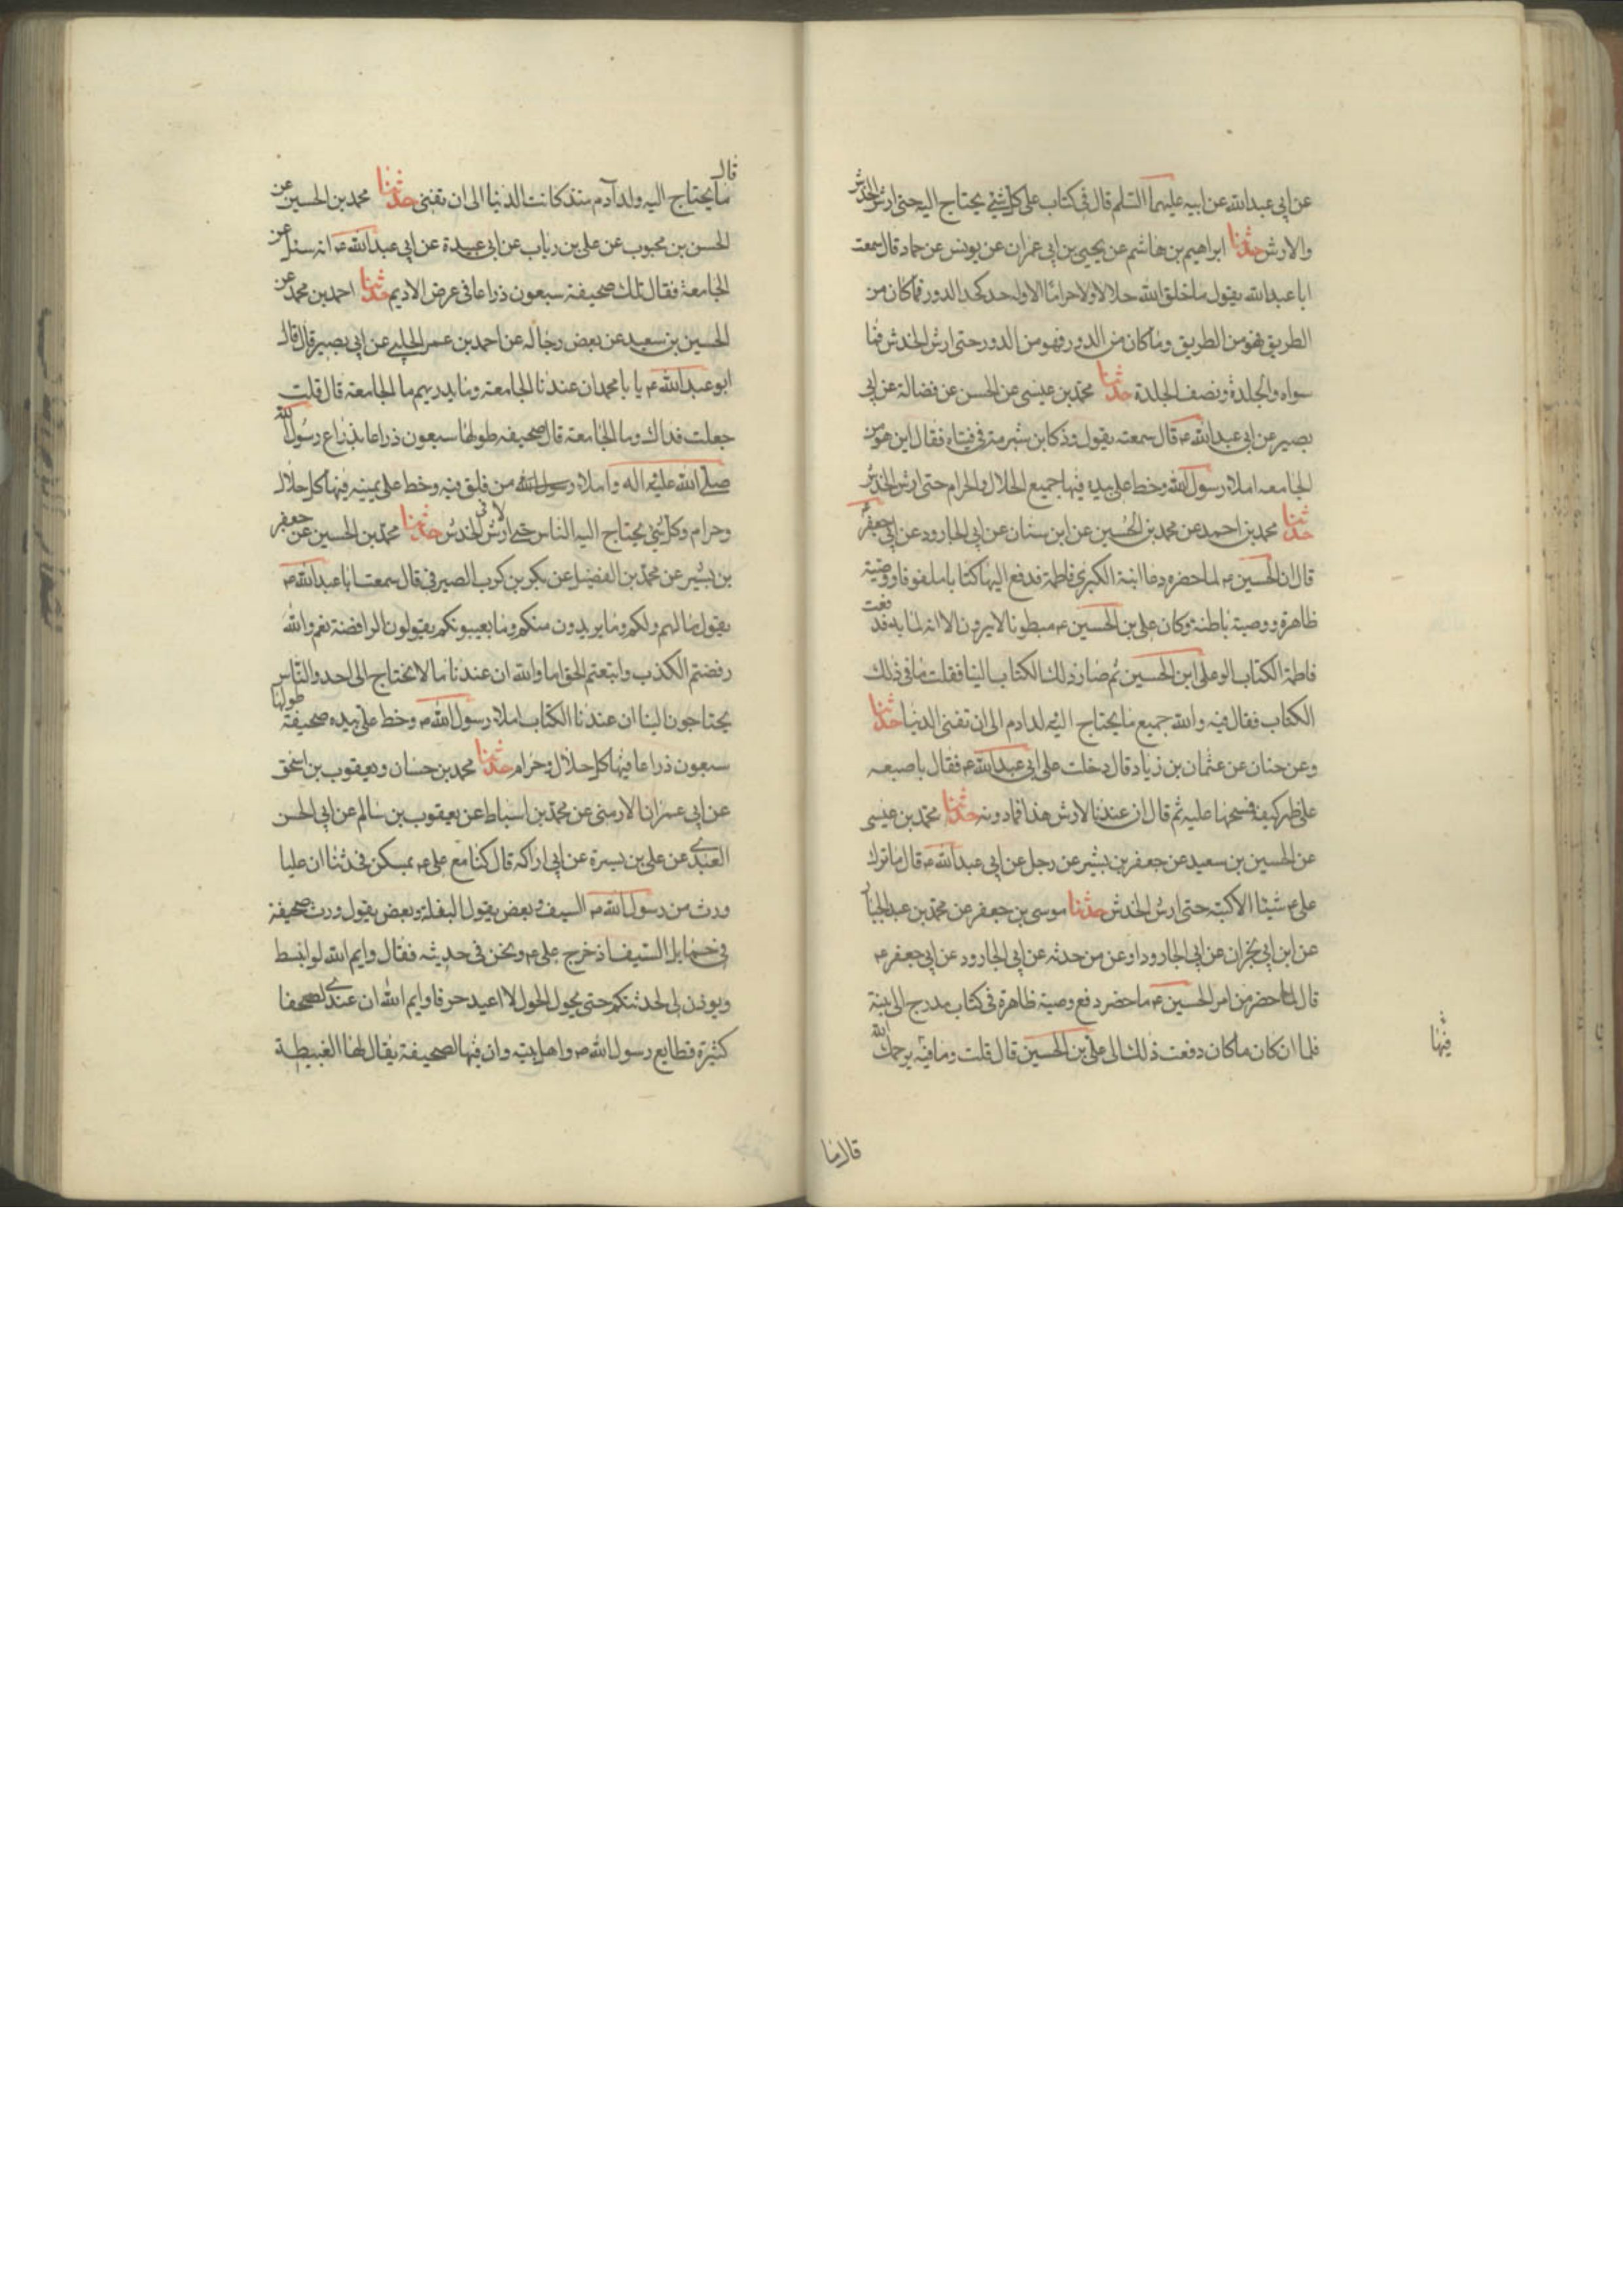 عن ابي عبدالله عن ابيه عليهما السلم قال في كتاب علي كل شئ يحتاج اليه حتى ارش الخدش
والارش حدثنا ابراهيم بن هاشم عن يحيى بن ابي عمران عن يونس عن حماد قال سمعت
ابا عبدالله يقول ما خلق الله حلالا ولا حراما الا وله حد كحد الدور فما كان من
الطريق فهو من الطريق وما كان من الدور فهو من الدور حتى ارش الخدش فما
سواه والجلدة ونصف الجلدة حدثنا محمد بن عيسى عن الحسن عن فضالة عن ابي
بصير عن ابي عبدالله ع قال سمعته يقول وذكر ابن شبرمة في فتياه فقال اين هو من
الجامعه املاء رسول الله وخط علي بيده فيها جميع الحلال والحرام حتى ارش الخدش
حدثنا محمد بن احمد عن محمد بن الحسين عن ابن سنان عن ابي الجارود عن ابي جعفر ع
قال ان الحسين ع لما حضره دعا ابنته الكبرى فاطمة فدفع اليها كتابا ملفوفا ووصية
ظاهرة ووصية باطنة وكان علي بن الحسين ع مبطونا لا يرون الا انه لما به فدفعت
فاطمة الكتاب الى علي ابن الحسين ثم صار ذلك الكتاب الينا فقلت ما في ذلك
الكتاب فقال فيه والله جميع ما يحتاج اليه ولد ادم الى ان تفنى الدنيا حدثنا
وعن حنان عن عثمان بن زياد قال دخلت على ابي عبدالله ع فقال باصبعه
على ظهر كفه فمسحها عليه ثم قال ان عندنا لارش هذا فما دونه حدثنا محمد بن عيسى
عن الحسين بن سعيد عن جعفر بن بشير عن رجل عن ابي عبدالله ع قال ما ترك
علي ع شيئا الا كتبه حتى ارش الخدش حدثنا موسى بن جعفر عن محمد بن عبد الجبار
عن ابن ابي نجران عن ابي الجارود او عن من حدثه عن ابي الجارود عن ابي جعفر ع
قال لما حضر من امر الحسين ع ما حضر دفع وصية ظاهرة في كتاب مدرج الى ابنته
فلما ان كان ما كان دفعت ذلك الى علي بن الحسين قال قلت وما فيه يرحمك الله
فيها
قال ما
قال
ما يحتاج اليه ولد آدم منذ كانت الدنيا الى ان تفنى حدثنا محمد بن الحسين عن
الحسن بن محبوب عن علي بن رئاب عن ابي عبيدة عن ابي عبدالله ع انه سئل عن
الجامعة فقال تلك صحيفة سبعون ذراعا في عرض الاديم حدثنا احمد بن محمد عن
الحسين بن سعيد عن بعض رجاله عن احمد بن عمر الحلبي عن ابي بصير قال قال
ابو عبدالله ع يا با محمد ان عندنا الجامعة وما يدريهم ما الجامعة قال قلت
جعلت فداك وما الجامعة قال صحيفه طولها سبعون ذراعا بذراع رسول الله
صلى الله عليه اله واملاء رسول الله من فلق فيه وخط علي بيمينه فيها كل حلال
وحرام وكل شئ يحتاج اليه الناس حتى ارش الخدش حدثنا محمد بن الحسين عن جعفر
بن بشير عن محمد بن الفضيل عن بكر بن كرب الصيرفي قال سمعت ابا عبدالله ع
يقول ما لهم ولكم وما يريدون منكم وما يعيبونكم يقولون الرافضة نعم والله
رفضتم الكذب واتبعتم الحق اما والله ان عندنا ما لا نحتاج الى احد والناس
يحتاجون الينا ان عندنا الكتاب املاء رسول الله ص وخط علي بيده صحيفة طولها
سبعون ذراعا فيها كل حلال وحرام حدثنا محمد بن حسان ويعقوب بن اسحق
عن ابي عمران الارمني عن محمد بن اسباط عن يعقوب بن سالم عن ابي الحسن
العبدي عن علي بن ميسرة عن ابي اراكه قال كنا مع علي ع بمسكن فحدثنا ان عليا
ورث من رسول الله ص السيف وبعض يقول البغلة وبعض يقول ورث صحيفة
في حمايل السيف اذ خرج علي ع ونحن في حديثه فقال وايم الله لو انبسط
ويوذن لي لحدثتكم حتى يحول الحول لا اعيد حرفا وايم الله ان عندي لصحفا
كثيرة قطايع رسول الله ص واهل بيته وان فيها لصحيفة يقال لها العبيطة